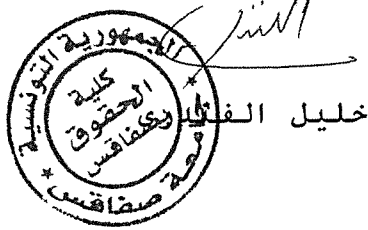 الجمهورية التونسية
جامعة صفاقس
كلية
الحقوق
بصفاقس
خليل